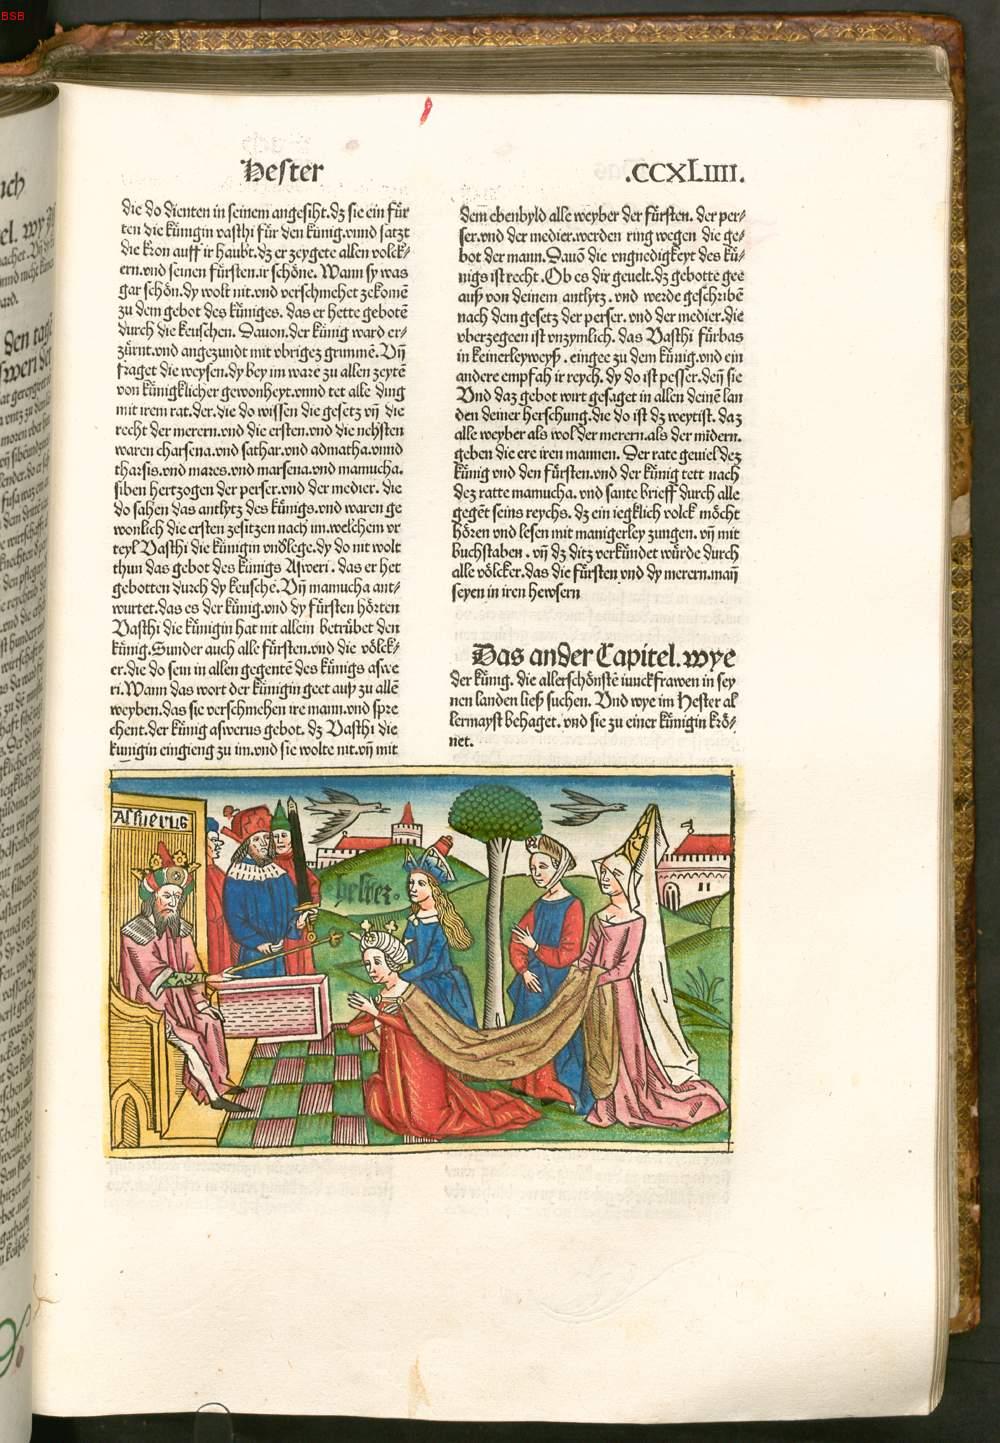 BSB
Hester
.CCXLIIII.
die do dienten in seinem angesiht.dz sie ein für
ten die künigin vasthi für den künig.vnnd satzt
die kron auff ir haubt.dz er zeygete allen volck⸗
ern.vnd seinen fürsten.ir schöne. Wann sy was
gar schön.dy wolt nit.vnd verschmehet zekomē
zu dem gebot des küniges. das er hette gebotē
durch die keuschen. Dauon.der künig ward er⸗
zürnt.vnd angezundt mit vbrigez grimmē. Vñ
fraget die weysen.dy bey im ware zu allen zeytē
von künigklicher gewonheyt.vnnd tet alle ding
mit irem rat.der.die do wissen die gesetz vñ die
recht der merern.vnd die ersten.vnd die nehsten
waren charsena.vnd sathar.vnd admatha.vnnd
tharsis.vnd mares.vnd marsena.vnd mamucha.
siben hertzogen der perser.vnd der medier. die
do sahen das antlytz des künigs.vnd waren ge
wonlich die ersten zesitzen nach im.welchem vr
teyl Vasthi die künigin vndlege.dy do nit wolt
thun das gebot des künigs Asweri. das er het
gebotten durch dy keuschē. Vñ mamucha ant⸗
wurtet.das es der künig.vnd dy fürsten hörten
Vasthi die künigin hat nit allein betrübet den
künig.Sunder auch alle fürsten.vnd die völck⸗
er.die do sein in allen gegentē des künigs aswe
ri.Wann das wort der künigin geet auß zu allē
weyben.das sie verschmehen ire mann.vnd spre
chent.der künig aswerus gebot. dz Vasthi die
kunigin eingieng zu im.vnd sie wolte nit.vñ mit
dem ebenbyld alle weyber der fürsten. der per⸗
ser.vnd der medier.werden ring wegen die ge⸗
bot der mann.Dauō die vngnedigkeyt des kü⸗
nigs ist recht.Ob es dir geuelt.dz gebotte gee
auß von deinem antlytz. vnd werde geschribē
nach dem gesetz der perser. vnd der medier.die
vberzegeen ist vnzymlich. das Vasthi fürbas
in keinerleyweyß. eingee zu dem künig.vnd ein
andere empfah ir reych. dy do ist pesser.deñ sie
Vnd daz gebot wirt gesaget in allen deinē lan
den deiner herschung.die do ist dz weytist. daz
alle weyber als wol der merern.als der mīdern.
geben die ere iren mannen. Der rate geuiel dez
künig vnd den fürsten.vnd der künig tett nach
dez ratte mamucha. vnd sante brieff durch alle
gegēt seins reychs. dz ein iegklich volck möcht
hören vnd lesen mit manigerley zungen. vñ mit
buchstaben. vñ dz ditz verkündet würde durch
alle völcker.das die fürsten vnd dy merern.mañ
seyen in iren hewsern
Das ander Capitel.wye
der künig. die allerschönstē iunckfrawen in sey
nen landen ließ suchen. Vnd wye im Hester al
lermayst behaget. vnd sie zu einer künigin krö⸗
net.
Assuerus
hester.